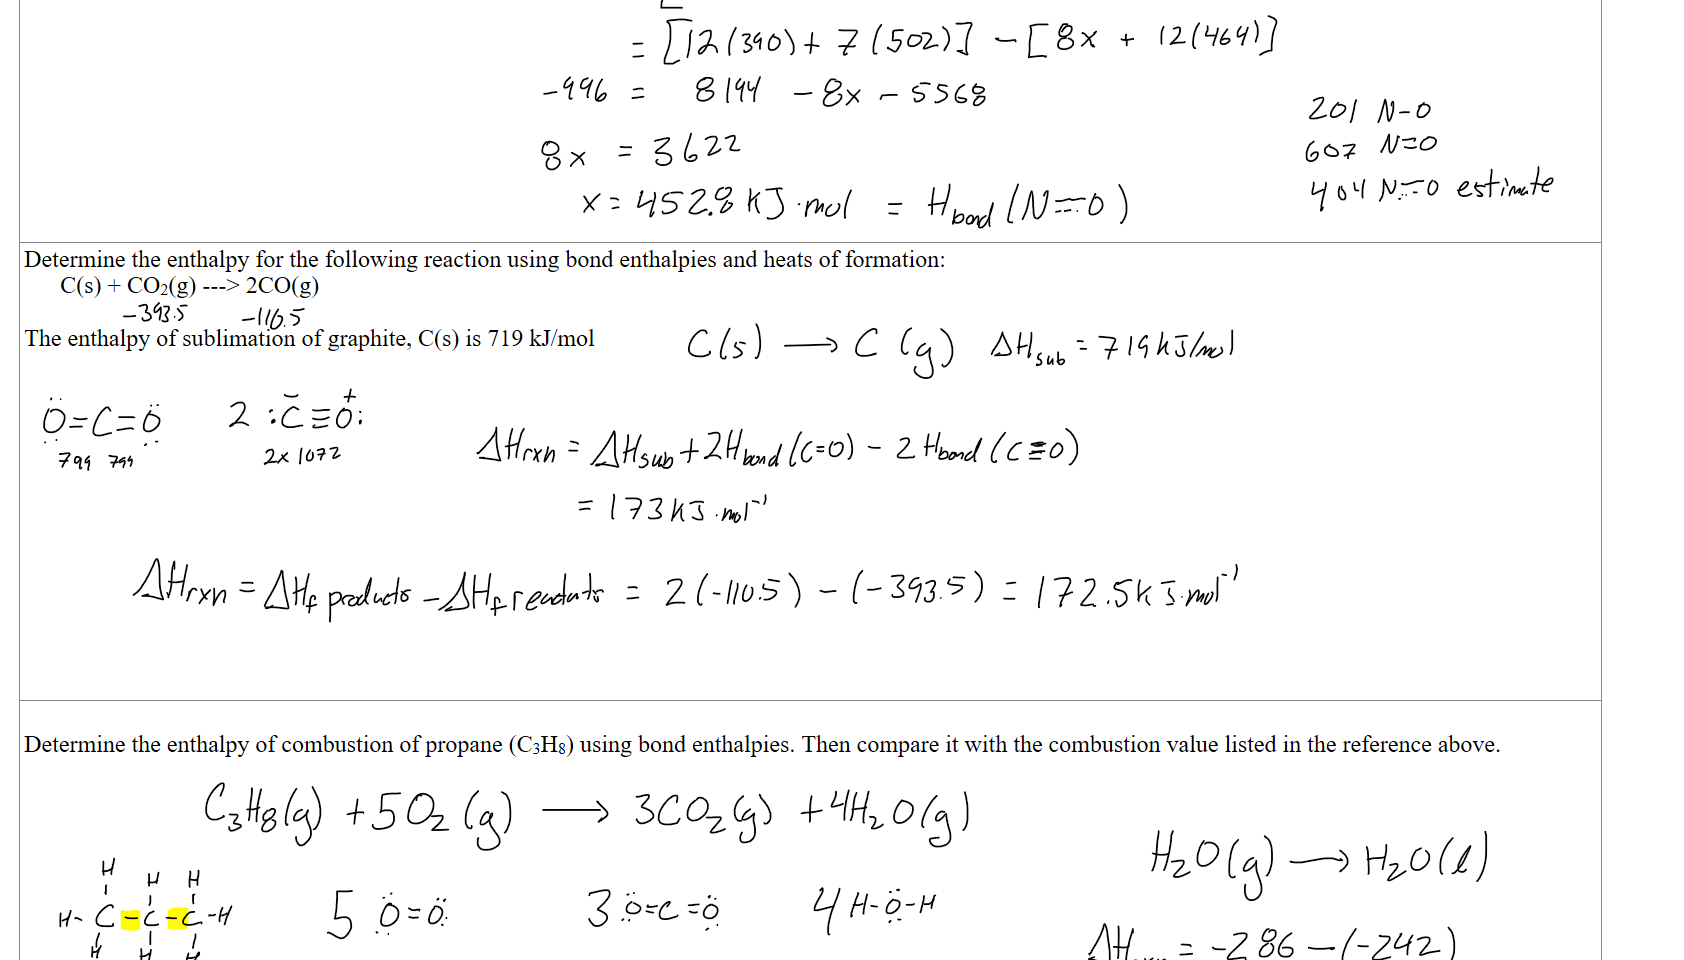 = [12(390) + 7(502)] - [8x + 12(464)]
-996 = 8194 - 8x - 5568
8x = 3622
x = 452.8 kJ·mol = Hbond (N=O)
201 N-O
607 N=O
404 N=O estimate
Determine the enthalpy for the following reaction using bond enthalpies and heats of formation:
C(s) + CO₂(g) ---> 2CO(g)
-393.5 -110.5
The enthalpy of sublimation of graphite, C(s) is 719 kJ/mol
C(s) ⟶ C(g) ΔHsub = 719 kJ/mol
Ö=C=Ö 2 :C≡O:
- +
799 799 2x 1072
ΔHrxn = ΔHsub + 2Hbond (C=O) - 2Hbond (C≡O)
= 173 kJ·mol⁻¹
ΔHrxn = ΔHf products - ΔHf reactants = 2(-110.5) - (-393.5) = 172.5 kJ·mol⁻¹
Determine the enthalpy of combustion of propane (C₃H₈) using bond enthalpies. Then compare it with the combustion value listed in the reference above.
C₃H₈(g) + 5O₂(g) ⟶ 3CO₂(g) + 4H₂O(g)
H₂O(g) ⟶ H₂O(l)
H H H
H-C-C-C-H 5 Ö=Ö 3 Ö=C=Ö 4 H-Ö-H
H H H
ΔH = -286 - (-242)